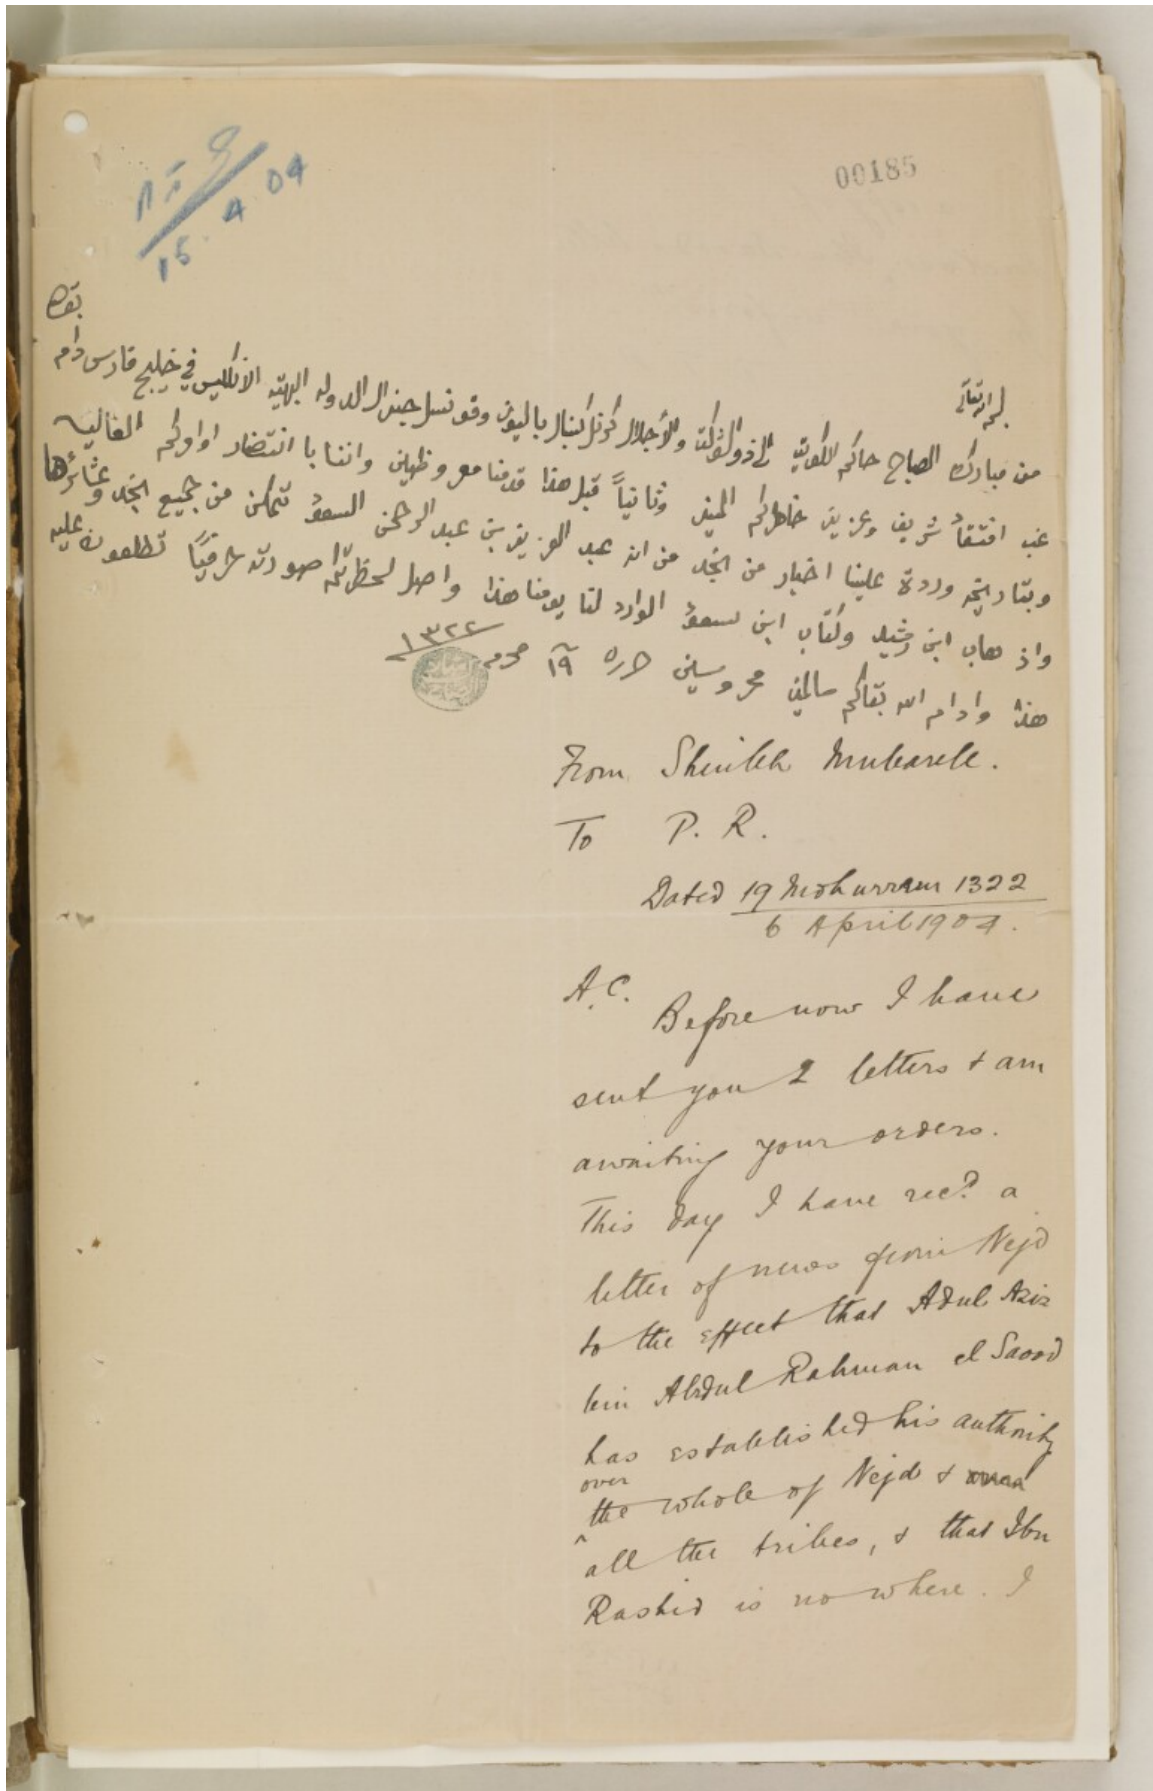 00185
15.4.04
بسم الله تعالى
من مبارك الصباح حاكم الكويت الى ذو الشوكت والأجلال كرنل كنبال باليوز وقونسل جنرال الدوله البهيه الانكليس في خليج فارس دام
بقاه
غب افتقاد شريف وعزيز خاطركم المنير وثانياً قبل هذا قدمنا معروظين واننا با انتضار اوامركم العاليه
وبتاريخه وردة علينا اخبار من انجد من ان عبد العزيز بن عبد الرحمن السعود تمكن من جميع انجد وعشائرها
واذهاب ابن رشيد وكتاب ابن سعود الوارد لنا يومنا هذا واصل لحظرتكم صورته حرفياً تطلعون عليه
هذا وادام الله بقاكم سالمين محروسين حرره ١٩ محرم ١٣٢٢
From Sheikh Mubarak.
To P. R.
Dated 19 Mohurram 1322
6 April 1904.
A.C. Before now I have
sent you 2 letters & am
awaiting your orders.
This day I have recd a
letter of news from Nejd
to the effect that Adul Aziz
bin Abdul Rahman el Saood
has established his authority
over
the whole of Nejd &
all the tribes, & that Ibn
Rashid is nowhere. I